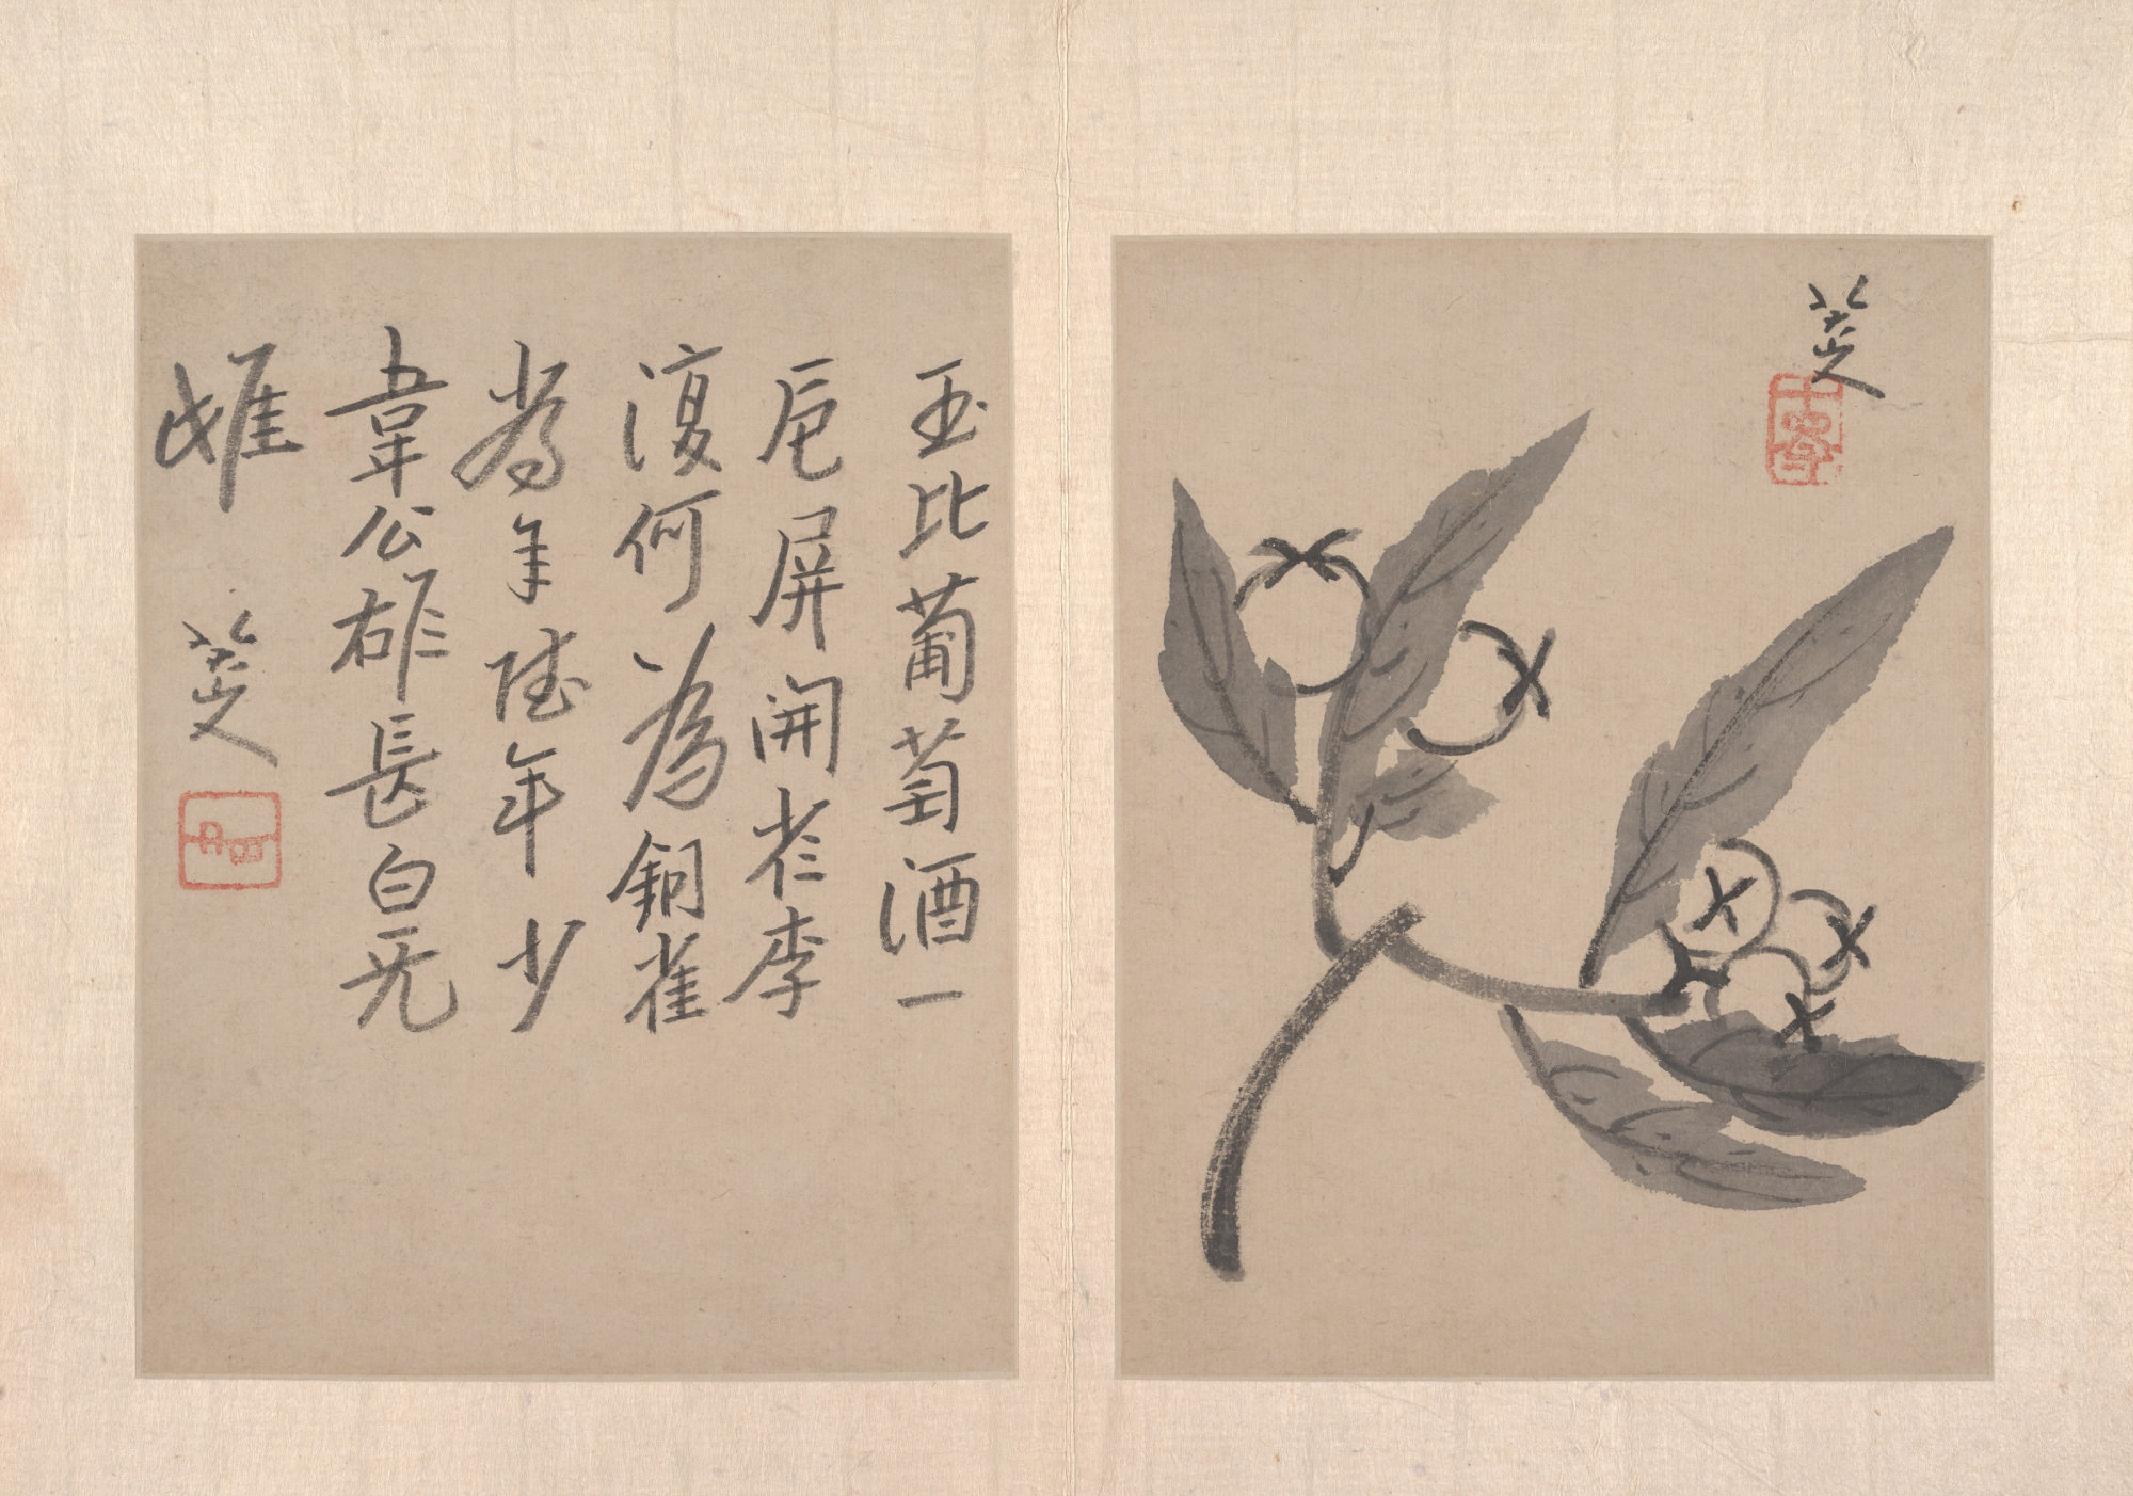 八大山人
玉比葡萄酒一
卮屏開李
復何為銅雀
為陸年少
韋公雄長白无
雌 八大山人